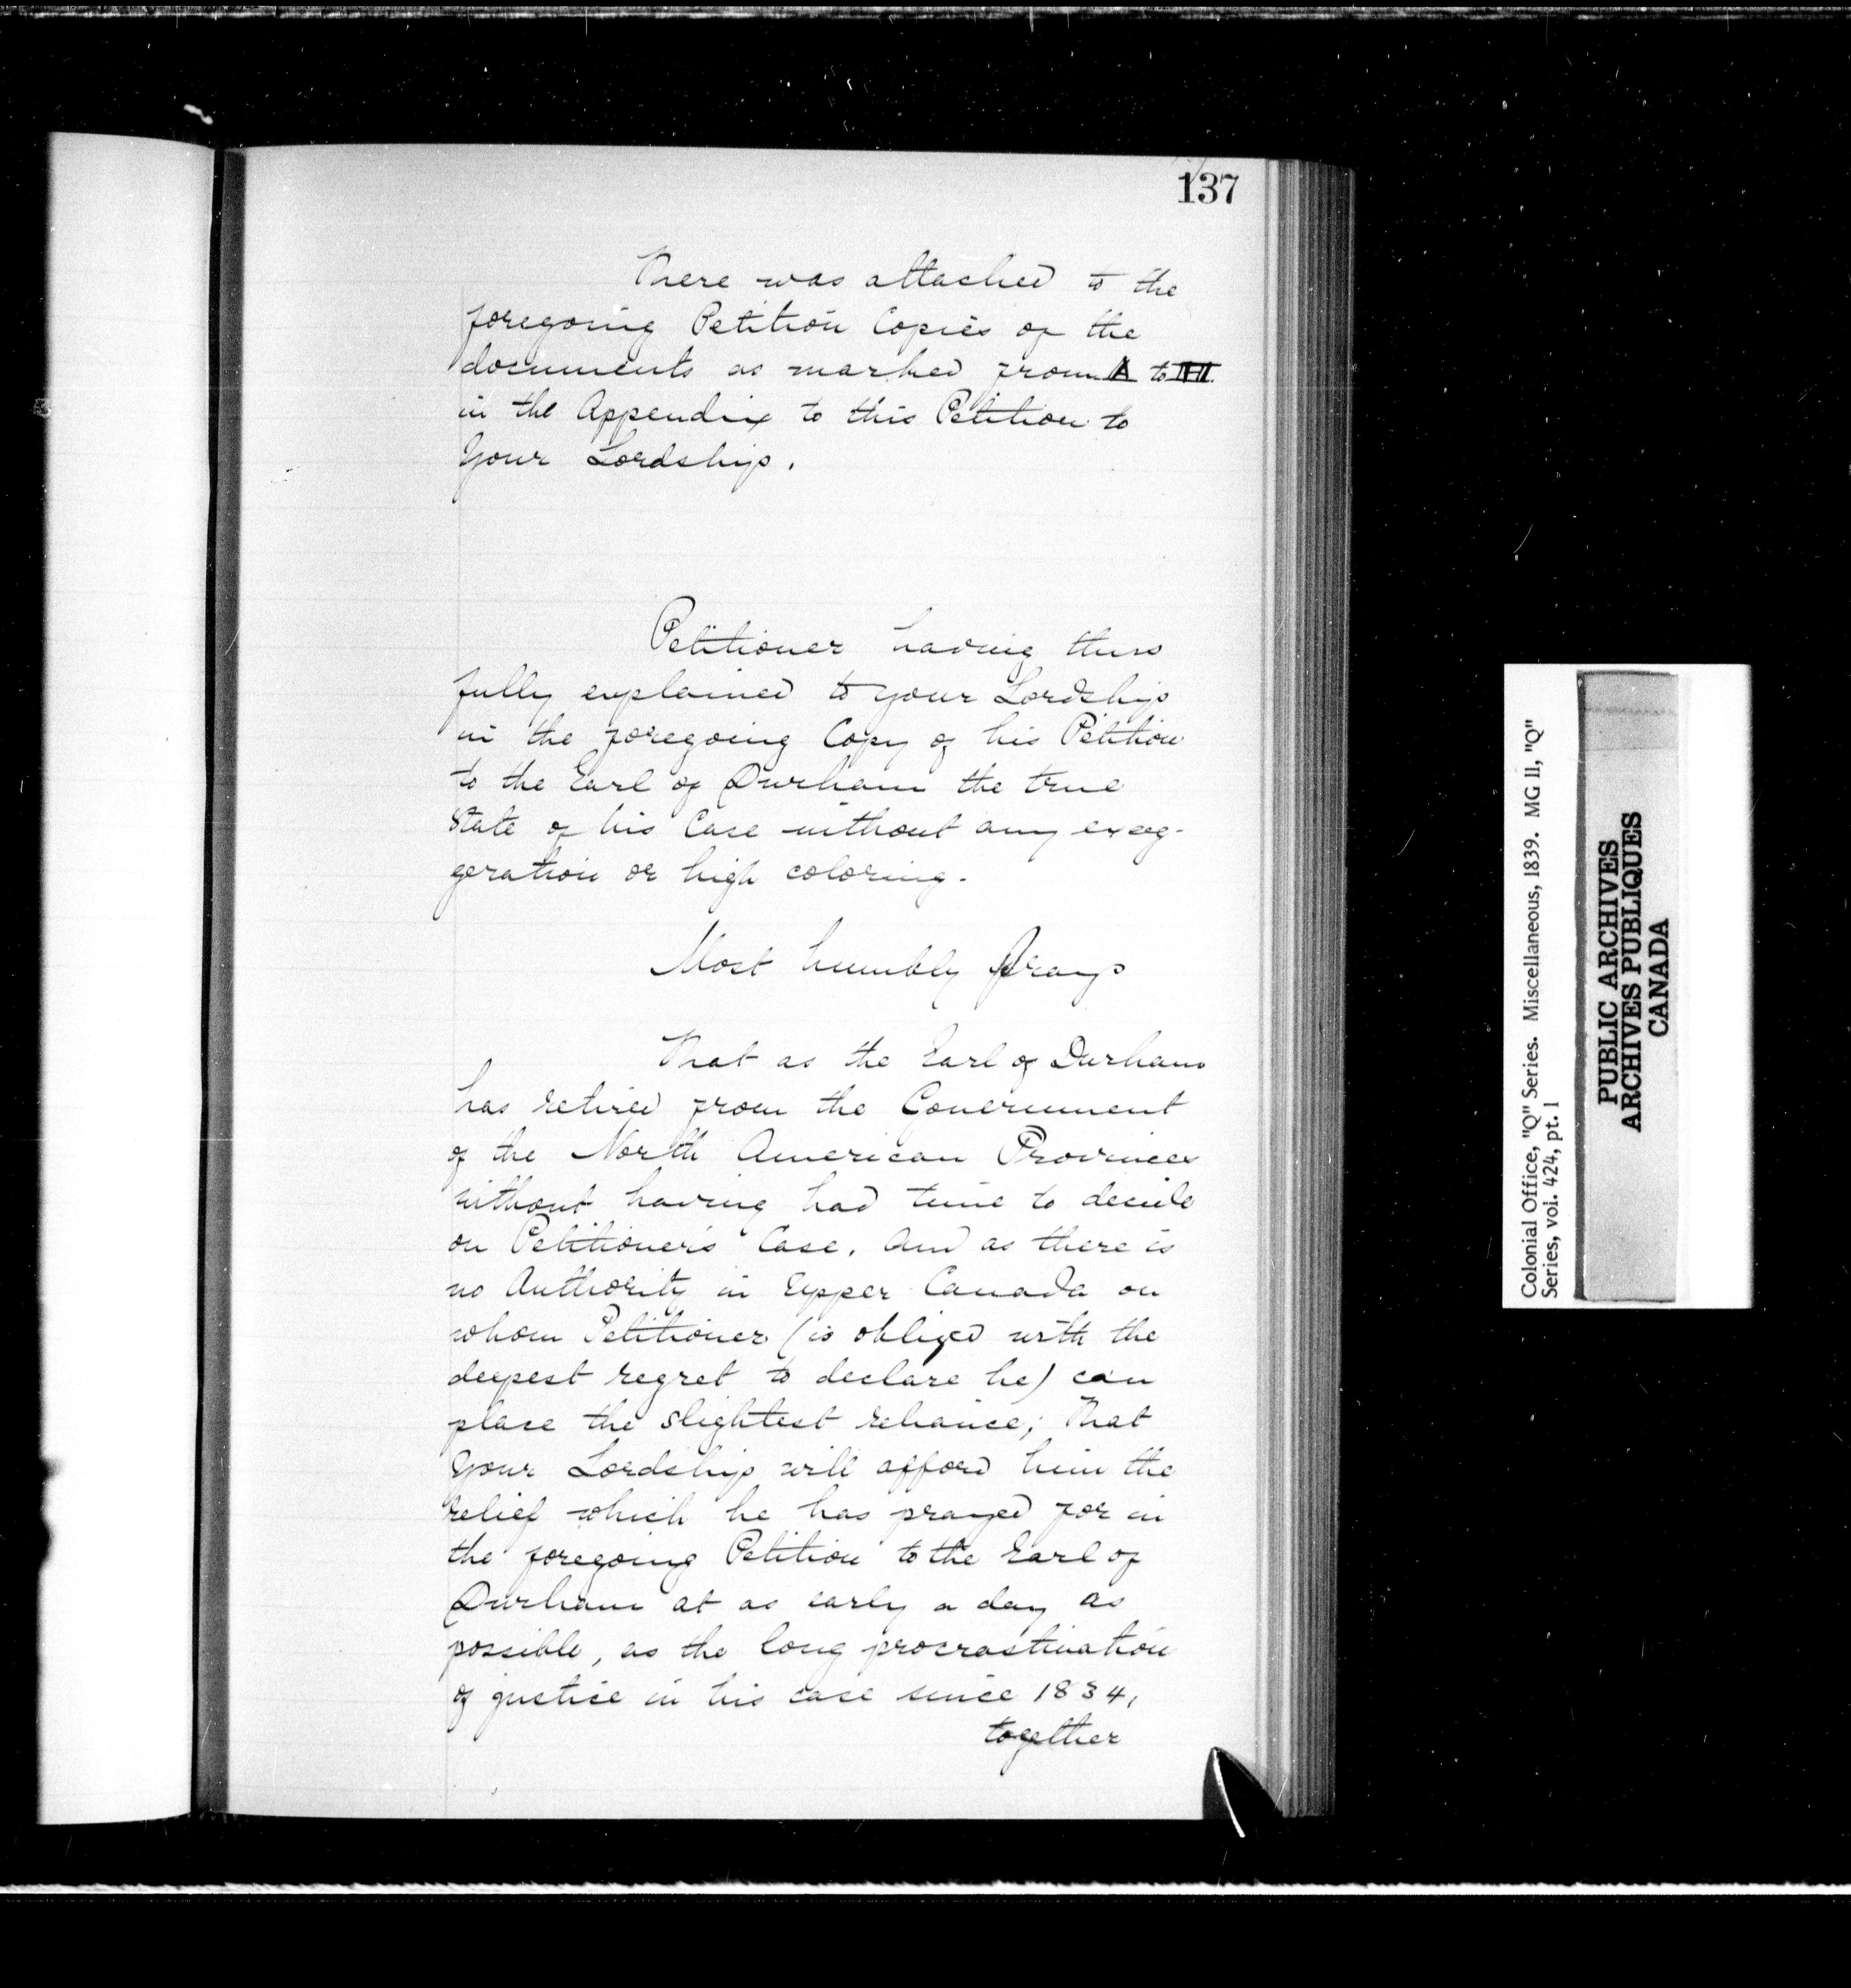 137
There was attached to the
foregoing Petition Copies of the
documents as marked from A to
in the Appendix to this Petition to
Your Lordship.
Petitioner having thus
fully explained to your Lordship
in the foregoing Copy of his Petition
to the Earl of Durham the true
State of his Case without any exag-
geration or high coloring.
Most humbly Prays
That as the Earl of Durham
has retired from the Government
of the North American Provinces
without having had time to decide
on Petitioner's Case. And as there is
no Authority in Upper Canada on
whom Petitioner (is obliged with the
deepest regret to declare he) can
place the slightest reliance; That
Your Lordship will afford him the
relief which he has prayed for in
the foregoing Petition to the Earl of
Durham at as early a day as
possible, as the long procrastination
of justice in his case since 1834,
together
Colonial Office, "Q" Series. Miscellaneous, 1839. MG 11, "Q"
Series, vol. 424, pt. 1
PUBLIC ARCHIVES
ARCHIVES PUBLIQUES
CANADA